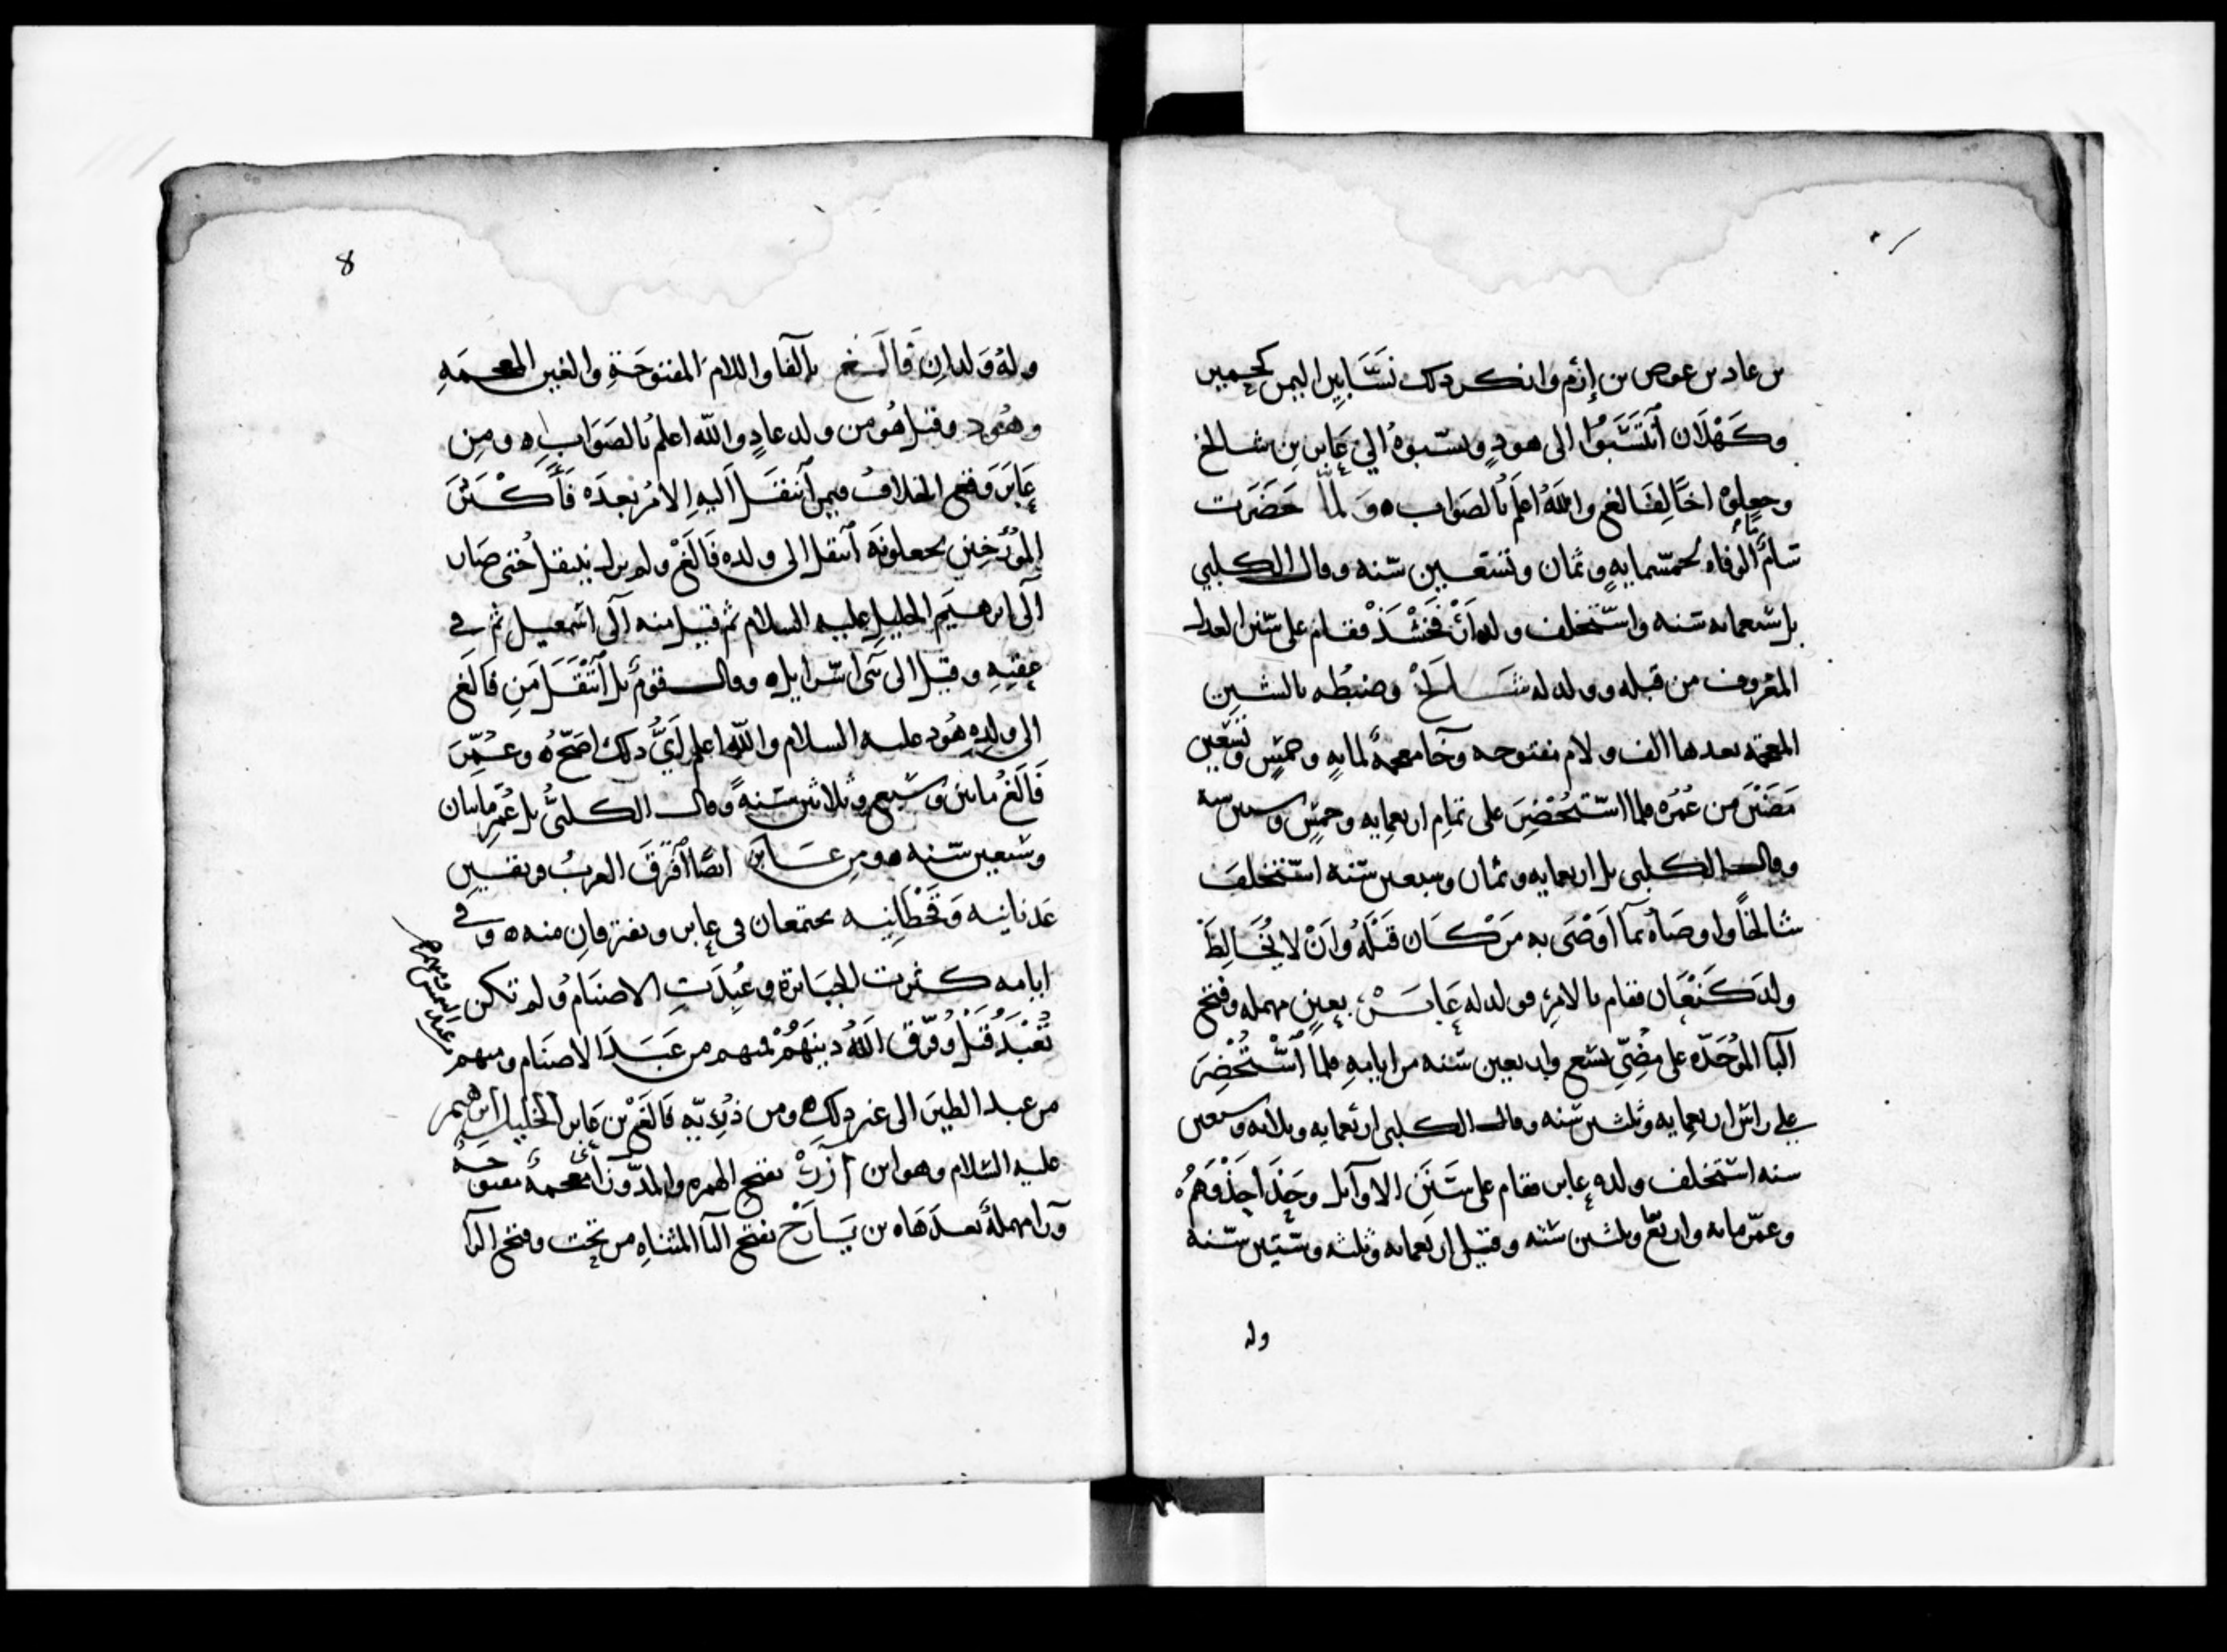 بن عاد بن عوص بن إرم وانكر ذلك نسّابين اليمن كحمير
وكهلان انتسبوا الى هود ونسبوهُ الي عابر بن شالخ
وجعلوه اخًا لِفالغ والله اعلم بالصواب ه ولما حضرت
سام الوفاه لخمسمايه وثمان وتسعين سنه وقال الكلبي
بل ستمايه سنه واستخلف ولده ارفخشد فقام على سنن العدل
المعروف من قبله وولد له شالخ وضبطه بالشين
المعجمه بعدها الف ولام مفتوحه وخا معجمة لمايه وخمسٍ وتسعين
مضين من عمره فلما استحضِر على تمام اربعمايه وخمسٍ وستين سنه
وقال الكلبي بل اربعمايه وثمان وسبعين سنه استخلف
شالخًا واوصاه بما أوصى به من كان قبله وان لا يخالط
ولد كنعان فقام بالامر وولد له عابر بعين مهمله وفتح
البا الموحده على مضي تسع واربعين سنه من ايامه فلما استحضر
على راس اربعمايه وثلثين سنه وقال الكلبي اربعمايه وثلاثه وسبعين
سنه استخلف ولده عابر فقام على سنن الاوايل وحذا حذوهم
وعمر مايه واربع وثلثين سنه وقيل اربعمايه وثلثه وستين سنه
وله
8
وله ولدان فالغ بالفا واللام المفتوحة والغين المعجمه
وهود وقيل هو من ولد عادٍ والله اعلم بالصواب ه ومن
عابر وقع الخلاف فيمن انتقل اليه الامر بعده فأكثر
المؤرخين يجعلونه انتقل الى ولده فالغ ولم يزل ينتقل حتى صار
الى ابرهيم الخليل عليه السلام ثم قيل منه الى اسمعيل ثم في
عقبه وقيل الى بني اسرايل ه وقال قوم بل انتقل من فالغ
الى ولده هود عليه السلام والله اعلم ايّ ذلك اصحّ ه وعمر
فالغ مايتين وسبع وثلاثين سنة وقال الكلبي بل عمر مايتان
وسبعين سنه ه ومن عابر ايضًا افترق العرب فرقتين
عدنانيه وقحطانيه يجتمعان في عابر ويفترقان منه ه وفي
ايامه كثرت الجبابرة وعُبدت الاصنام ولم تكن
تُعبد قبل وفرق الله دينهم فمنهم من عبد الاصنام ومنهم
من عبد الشمس ومنهم
من عبد الطين الى غير ذلك ه ومن ذريّه فالغ بن عابر الخليل ابرهيم
عليه السلام وهو ابن آزر بفتح الهمزه والمد وزاي معجمة مفتوحه
ورا مهملة بعدها ه بن يارح بفتح اليا المثناه من تحت وفتح الرا